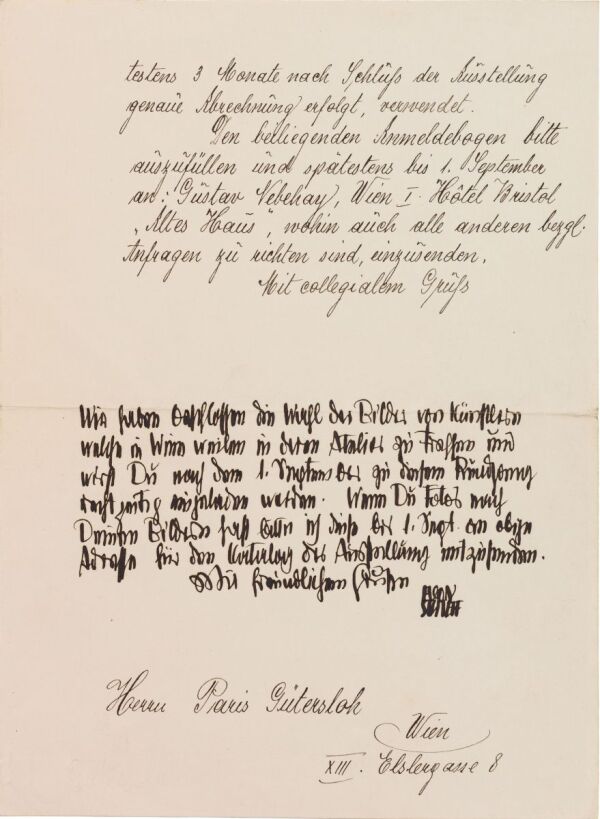 testens 3 Monate nach Schluß der Ausstellung
genaue Abrechnung erfolgt, verwendet.
Den beiliegenden Anmeldebogen bitte
auszufüllen und spätestens bis 1. September
an: Gustav Nebehay, Wien I. Hôtel Bristol
„Altes Haus“, wohin auch alle anderen bezgl.
Anfragen zu richten sind, einzusenden.
Mit collegialem Gruß
Wir haben beschlossen die Wahl der Bilder von Künstlern
welche in Wien weilen in deren Atelier zu treffen und
wirst Du nach dem 1. September zu diesem Rundgang
rechtzeitig eingeladen werden. Wenn Du Fotos nach
Deinen Bildern hast bitte ich diese bis 1. Sept. an obige
Adresse für den Katalog der Ausstellung mitzusenden.
Mit freundlichen Grüßen
EGON
SCHIELE
Herrn Paris Gütersloh
Wien
XIII. Elslergasse 8